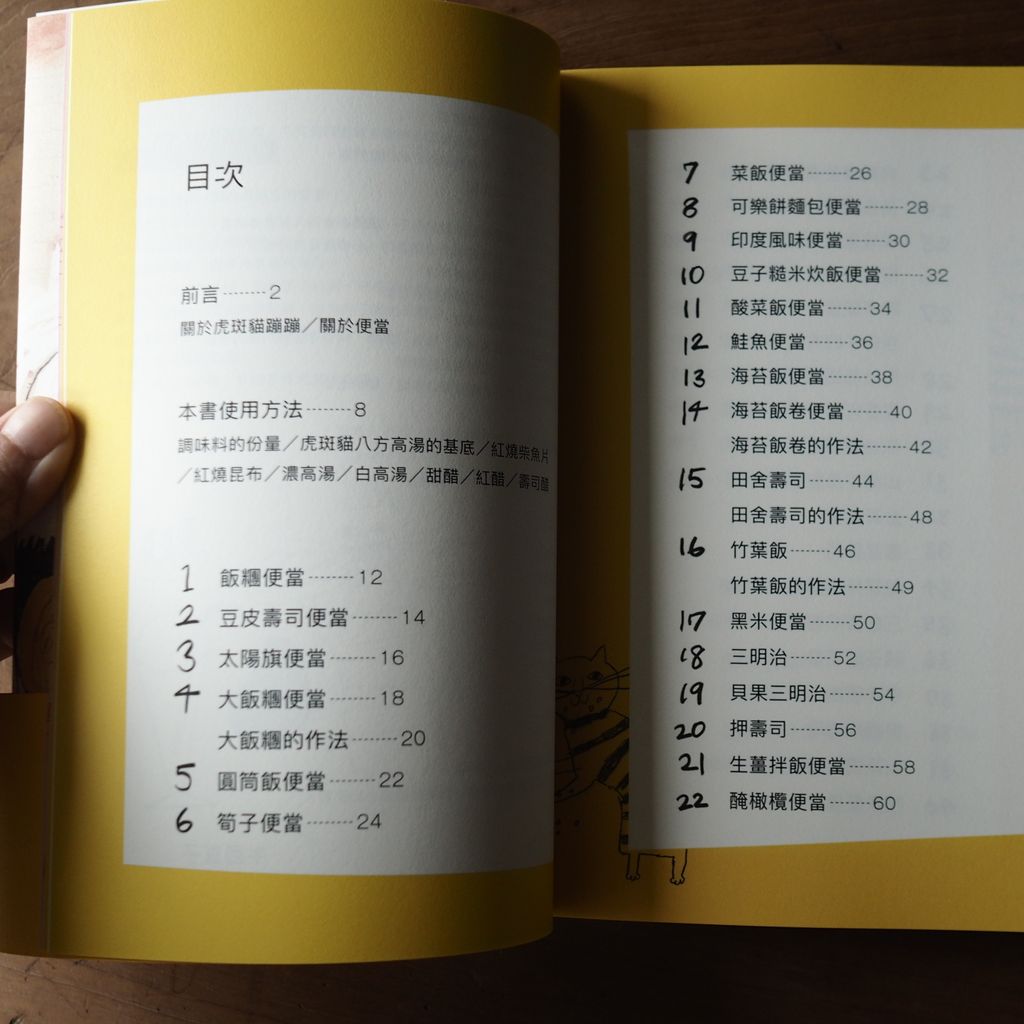 目次
前言--------2
關於虎斑貓蹦蹦／關於便當
本書使用方法--------8
調味料的份量／虎斑貓八方高湯的基底／紅燒柴魚片
／紅燒昆布／濃高湯／白高湯／甜醋／紅醋／壽司醋
1 飯糰便當--------12
2 豆皮壽司便當--------14
3 太陽旗便當--------16
4 大飯糰便當--------18
大飯糰的作法--------20
5 圓筒飯便當--------22
6 筍子便當--------24
7 菜飯便當--------26
8 可樂餅麵包便當--------28
9 印度風味便當--------30
10 豆子糙米炊飯便當--------32
11 酸菜飯便當--------34
12 鮭魚便當--------36
13 海苔飯便當--------38
14 海苔飯卷便當--------40
海苔飯卷的作法--------42
15 田舍壽司--------44
田舍壽司的作法--------48
16 竹葉飯--------46
竹葉飯的作法--------49
17 黑米便當--------50
18 三明治--------52
19 貝果三明治--------54
20 押壽司--------56
21 生薑拌飯便當--------58
22 醃橄欖便當--------60